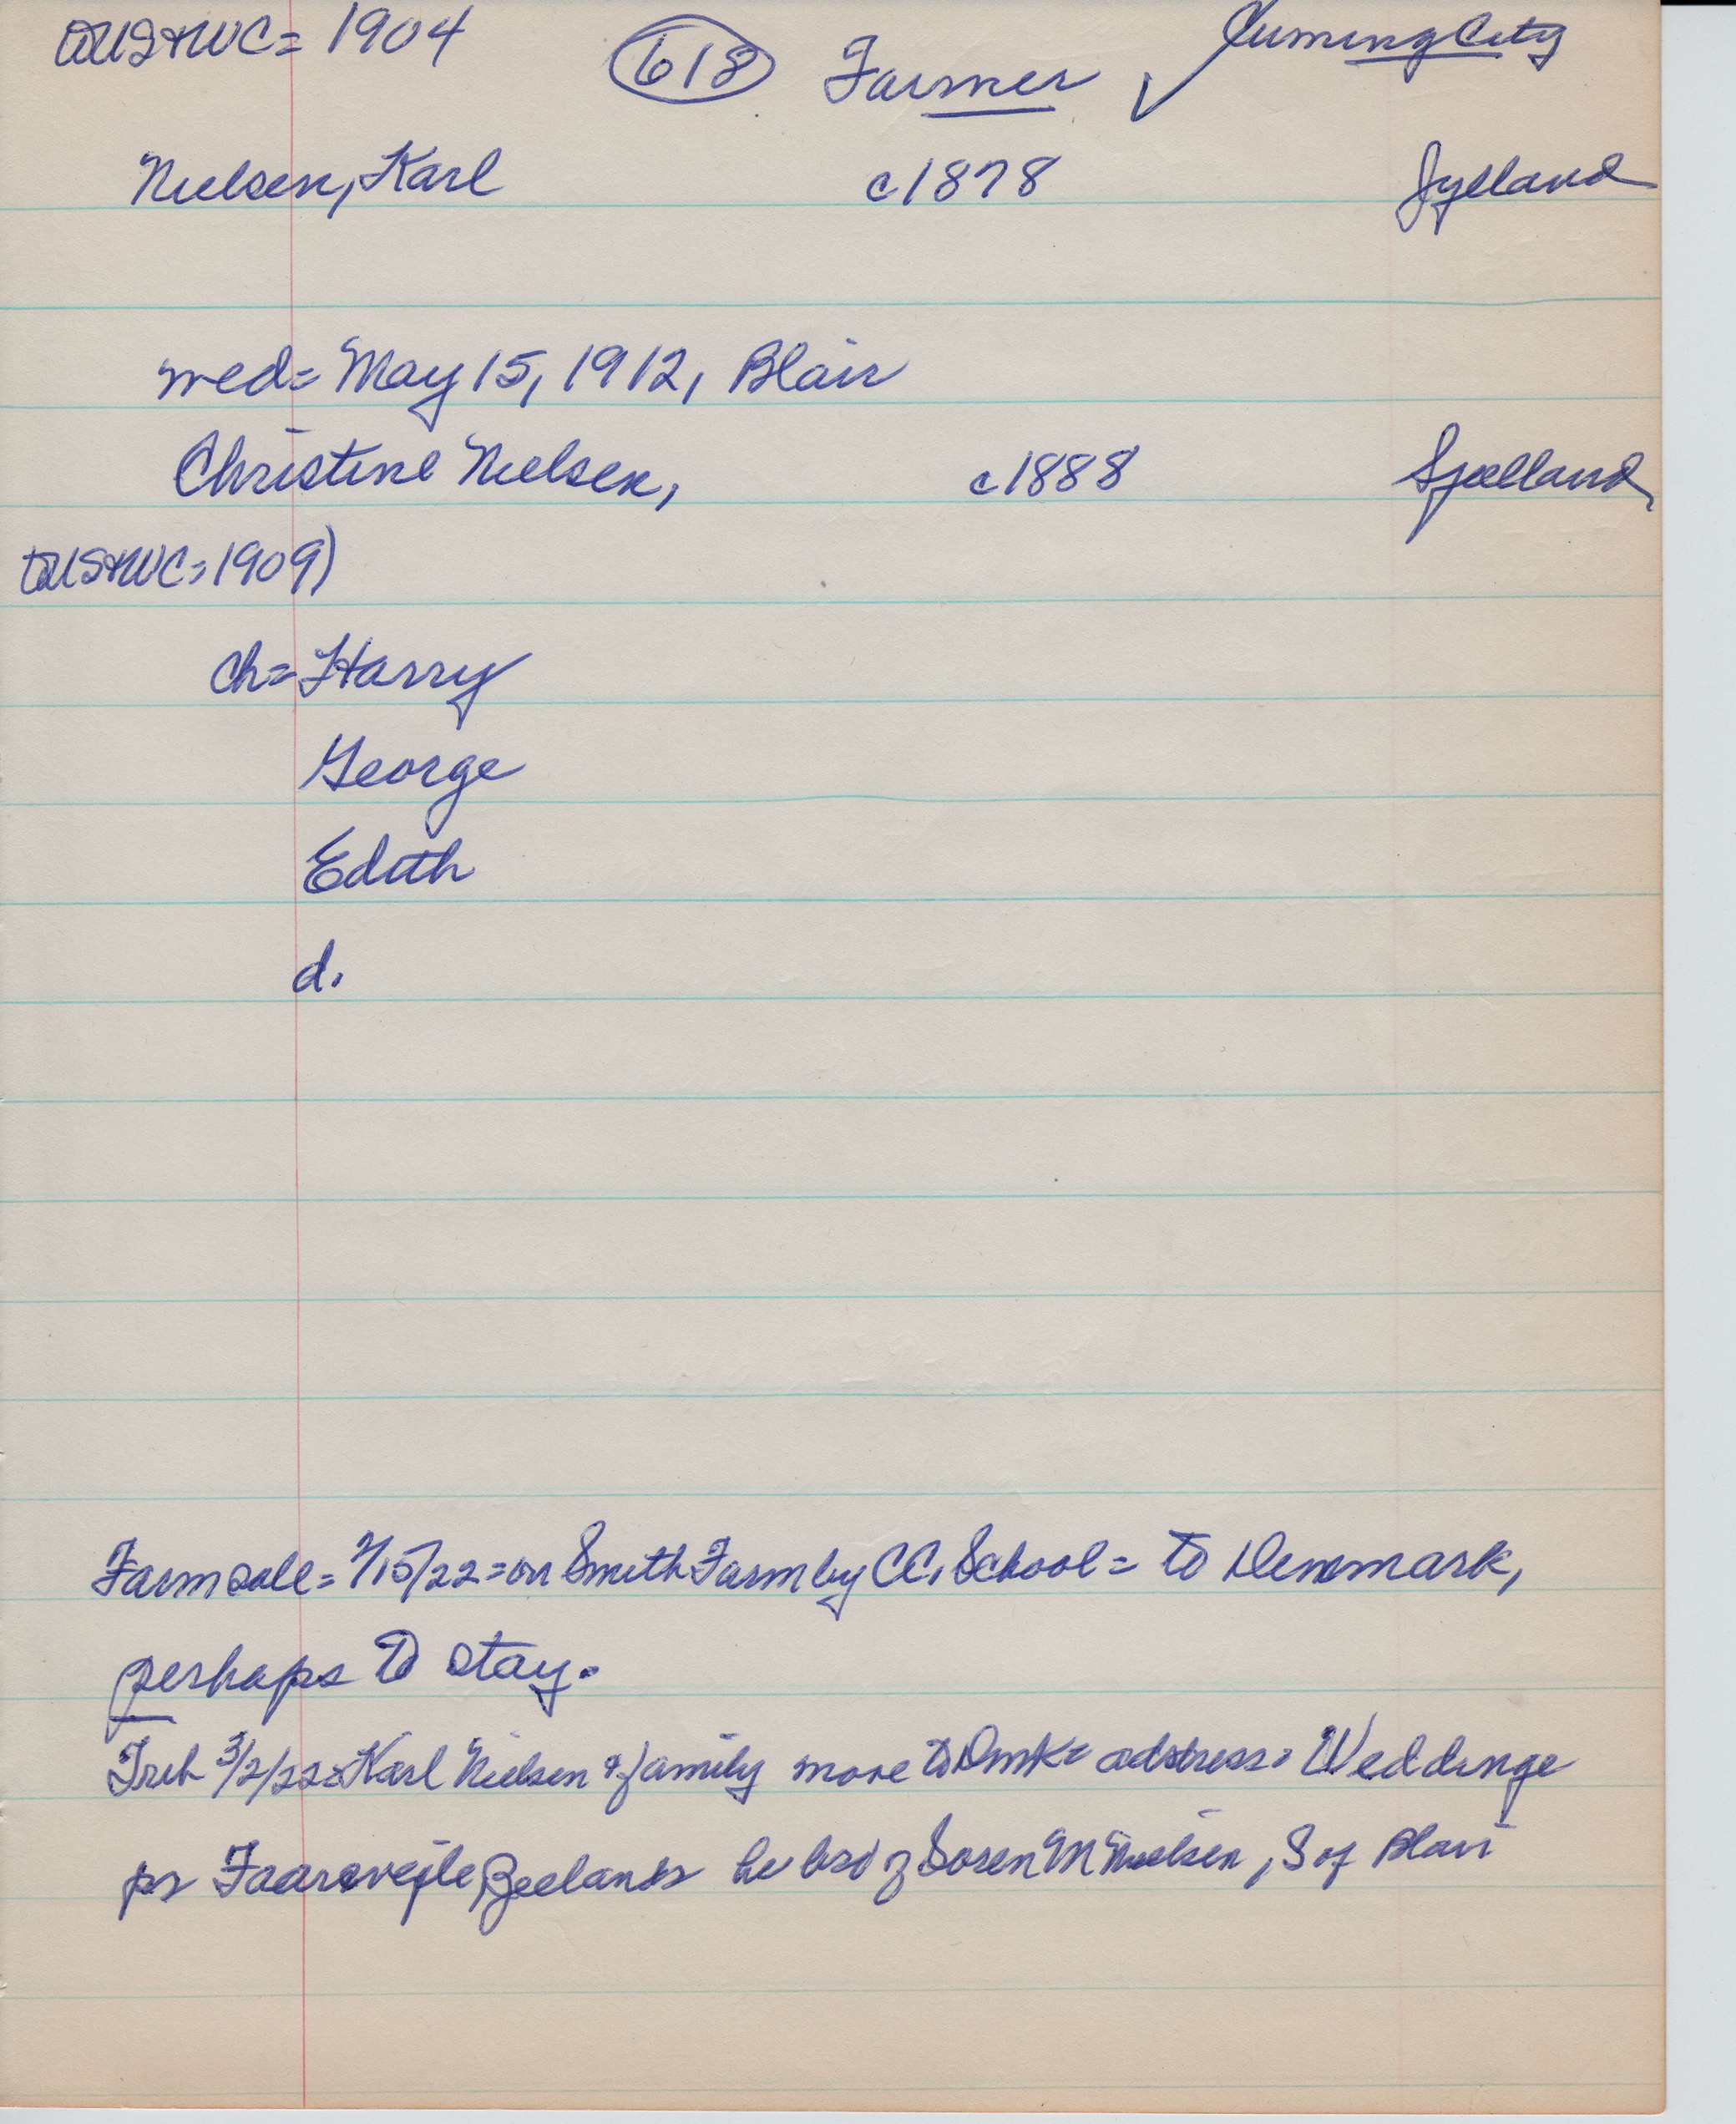 to US & WC = 1904
618 Farmer ✓ Cuming City
Nielsen, Karl c1878 Jylland
wed = May 15, 1912, Blair
Christine Nielsen, c1888 Sjælland,
to US & WC = 1909)
ch = Harry
George
Edith
d.
Farm sale = 2/15/22 = on Smith Farm by CC. School = to Denmark,
perhaps to stay.
Trib 3/2/22 = Karl Nielsen & family move to Dmk = address = Weddinge
pr Faarevejle, Zeeland he bro of Soren M Nielsen, S of Blair